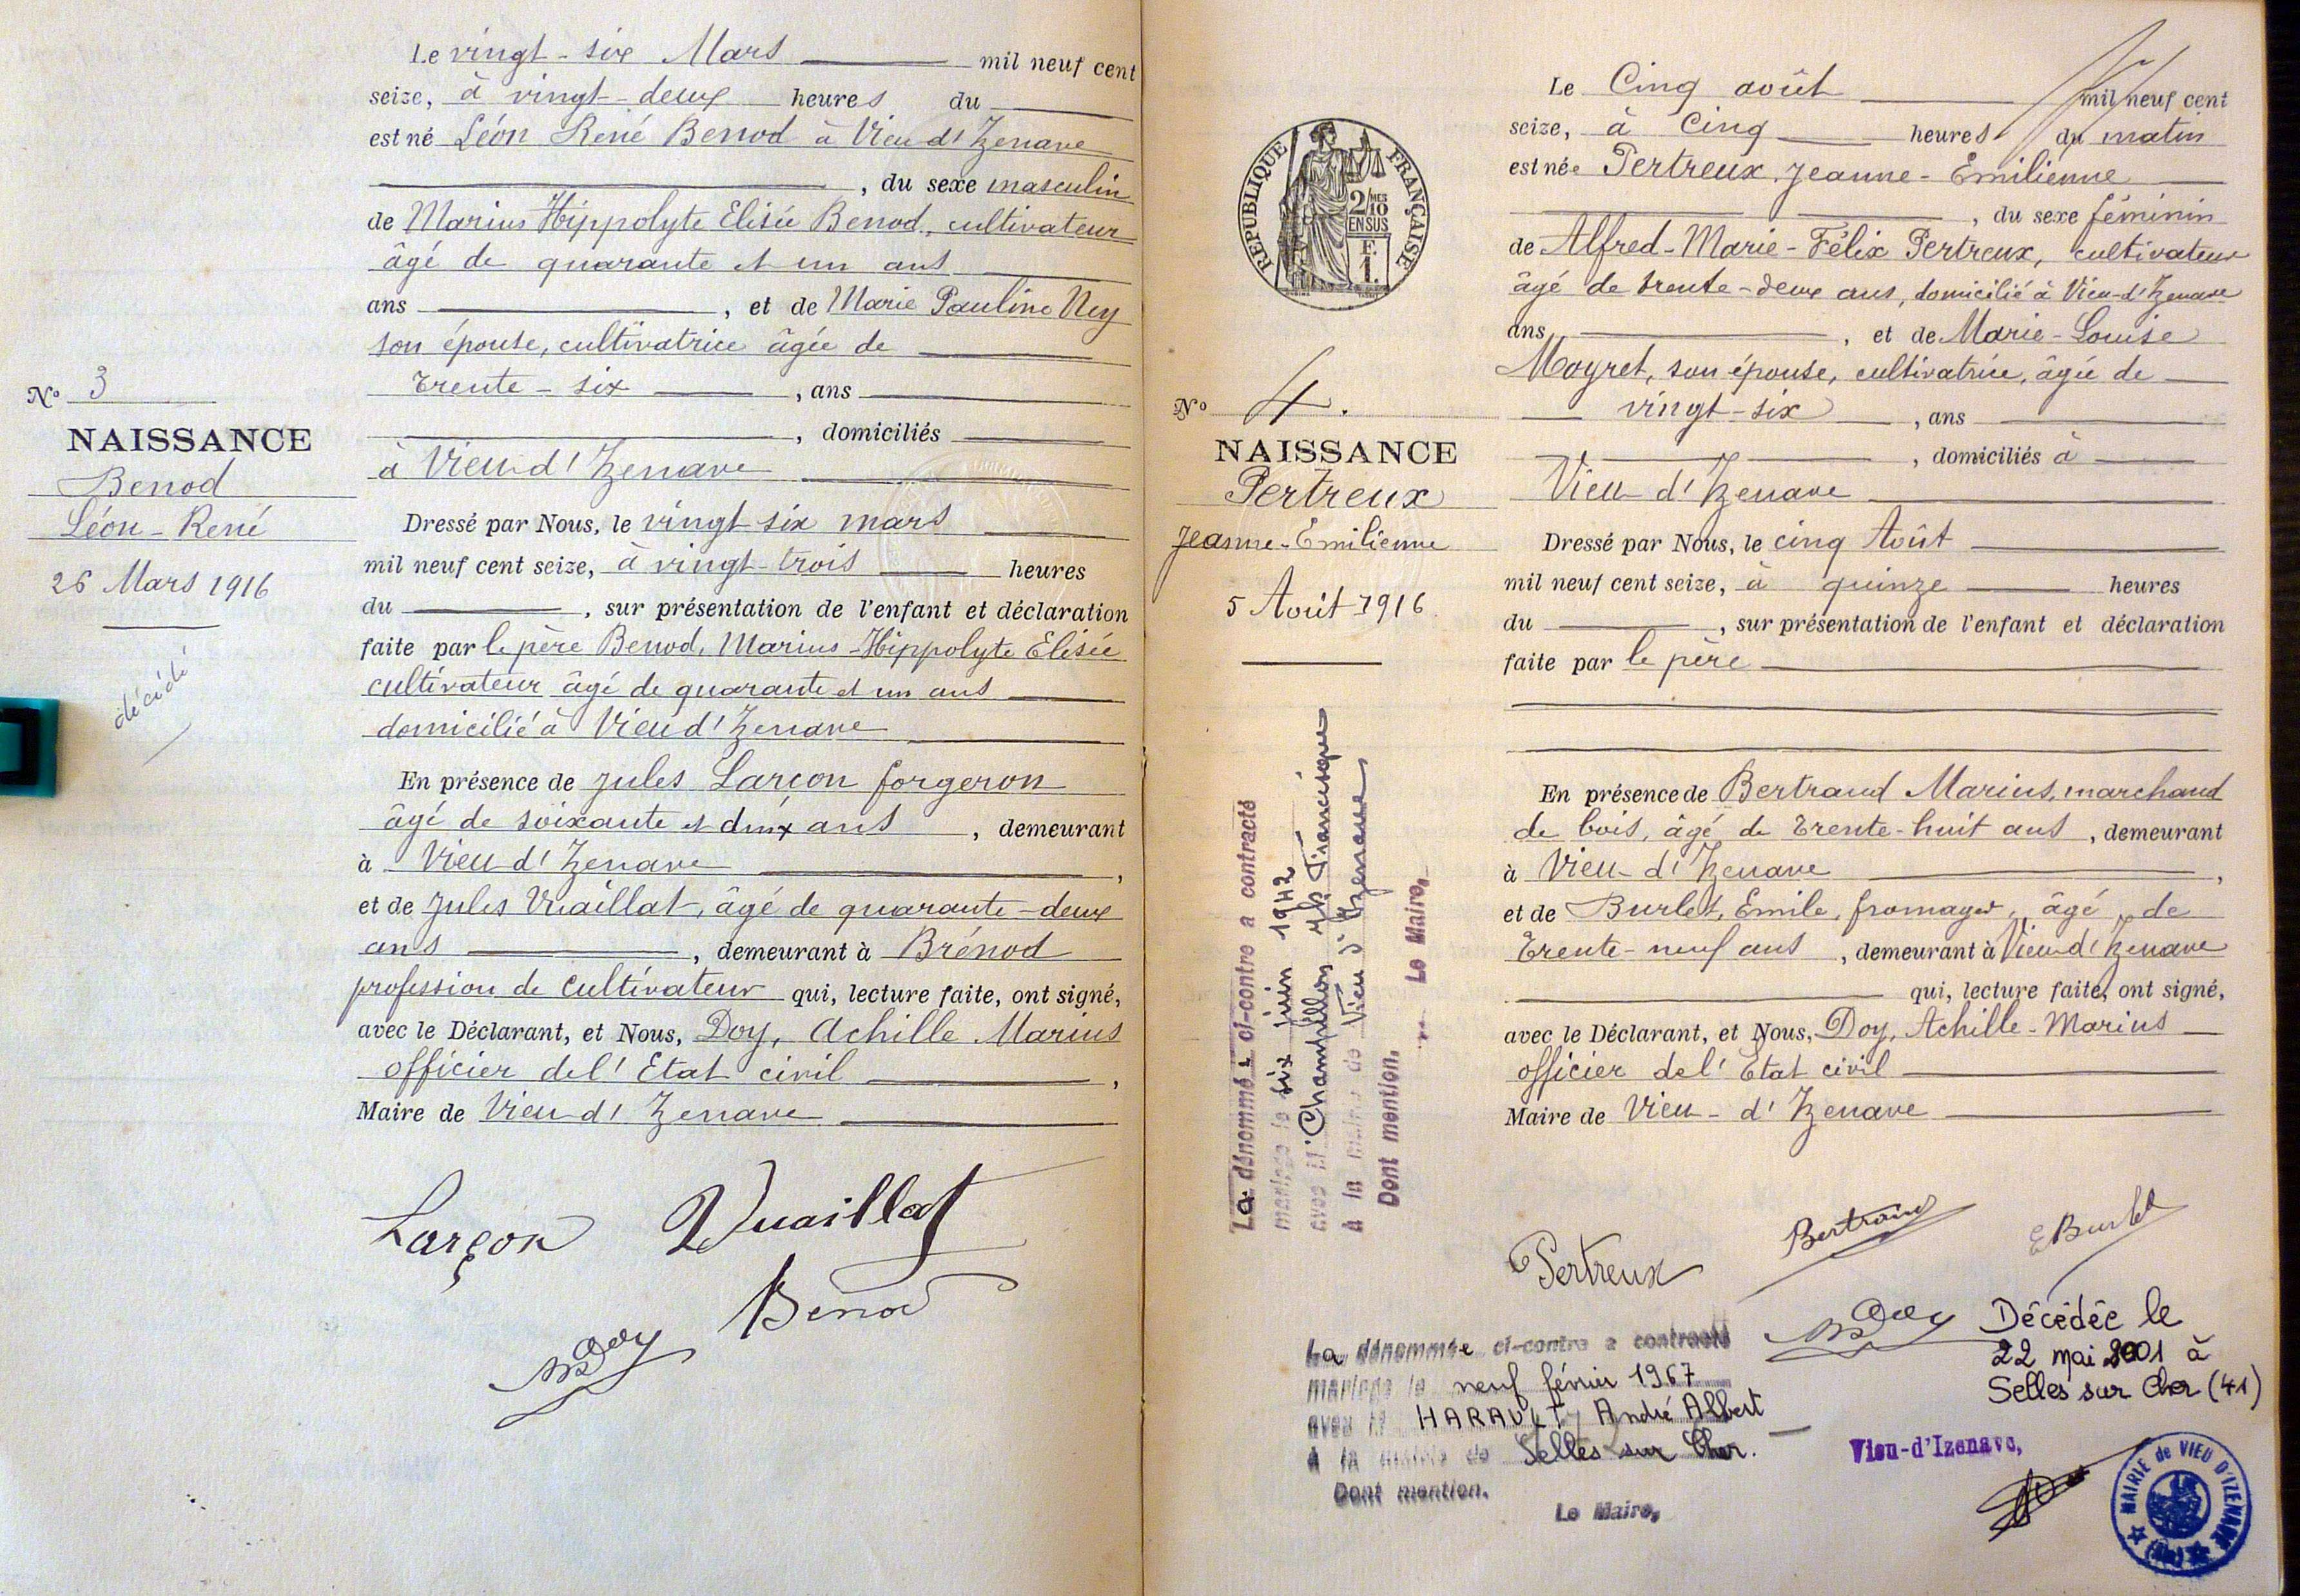 Le vingt-six Mars mil neuf cent
seize, à vingt-deux heures du
est né Léon René Benod à Vieu d'Izenave
, du sexe masculin
de Marius Hippolyte Elisée Benod, cultivateur
âgé de quarante et un ans
ans , et de Marie Pauline Ney
son épouse, cultivatrice âgée de
trente-six , ans
, domiciliés
à Vieu d'Izenave
Dressé par Nous, le vingt six mars
mil neuf cent seize, à vingt-trois heures
du , sur présentation de l'enfant et déclaration
faite par le père Benod, Marius-Hippolyte Elisée
cultivateur âgé de quarante et un ans
domicilié à Vieu d'Izenave
En présence de Jules Larçon forgeron
âgé de soixante et deux ans , demeurant
à Vieu d'Izenave ,
et de Jules Vuaillat, âgé de quarante-deux
ans , demeurant à Brénod
profession de cultivateur qui, lecture faite, ont signé,
avec le Déclarant, et Nous, Doy, Achille Marius
officier de l'Etat civil ,
Maire de Vieu d'Izenave
Larçon Vuaillat
Benod
Doy
No 3
NAISSANCE
Benod
Léon-René
26 Mars 1916
décédé
RÉPUBLIQUE FRANÇAISE
2/MES
10
EN SUS
F.
1.
No 4.
NAISSANCE
Pertreux
Jeanne-Emilienne
5 Août 1916
La dénommée ci-contre a contracté
mariage le six juin 1942
avec M. Champillon Francisque
à la mairie de Vieu d'Izenave
Dont mention.
Le Maire,
Le Cinq août mil neuf cent
seize, à Cinq heures du matin
est née Pertreux Jeanne-Emilienne
, du sexe féminin
de Alfred-Marie-Félix Pertreux, cultivateur
âgé de trente-deux ans, domicilié à Vieu-d'Izenave
ans , et de Marie-Louise
Moyret, son épouse, cultivatrice, âgée de
vingt-six , ans
, domiciliés à
Vieu d'Izenave
Dressé par Nous, le cinq Août
mil neuf cent seize, à quinze heures
du , sur présentation de l'enfant et déclaration
faite par le père
En présence de Bertrand Marius, marchand
de bois, âgé de trente-huit ans , demeurant
à Vieu-d'Izenave ,
et de Burlet, Emile, fromager, âgé de
trente-neuf ans , demeurant à Vieu d'Izenave
qui, lecture faite, ont signé,
avec le Déclarant, et Nous, Doy, Achille-Marius
officier de l'Etat civil
Maire de Vieu-d'Izenave
Pertreux Bertrand E Burlet
Doy
La dénommée ci-contre a contracté
mariage le neuf février 1967
avec M HARAULT André Albert
à la mairie de Selles sur Cher.
Dont mention.
Le Maire,
Décédée le
22 mai 2001 à
Selles sur Cher (41)
Vieu-d'Izenave,
MAIRIE de VIEU D'IZENAVE
(Ain)